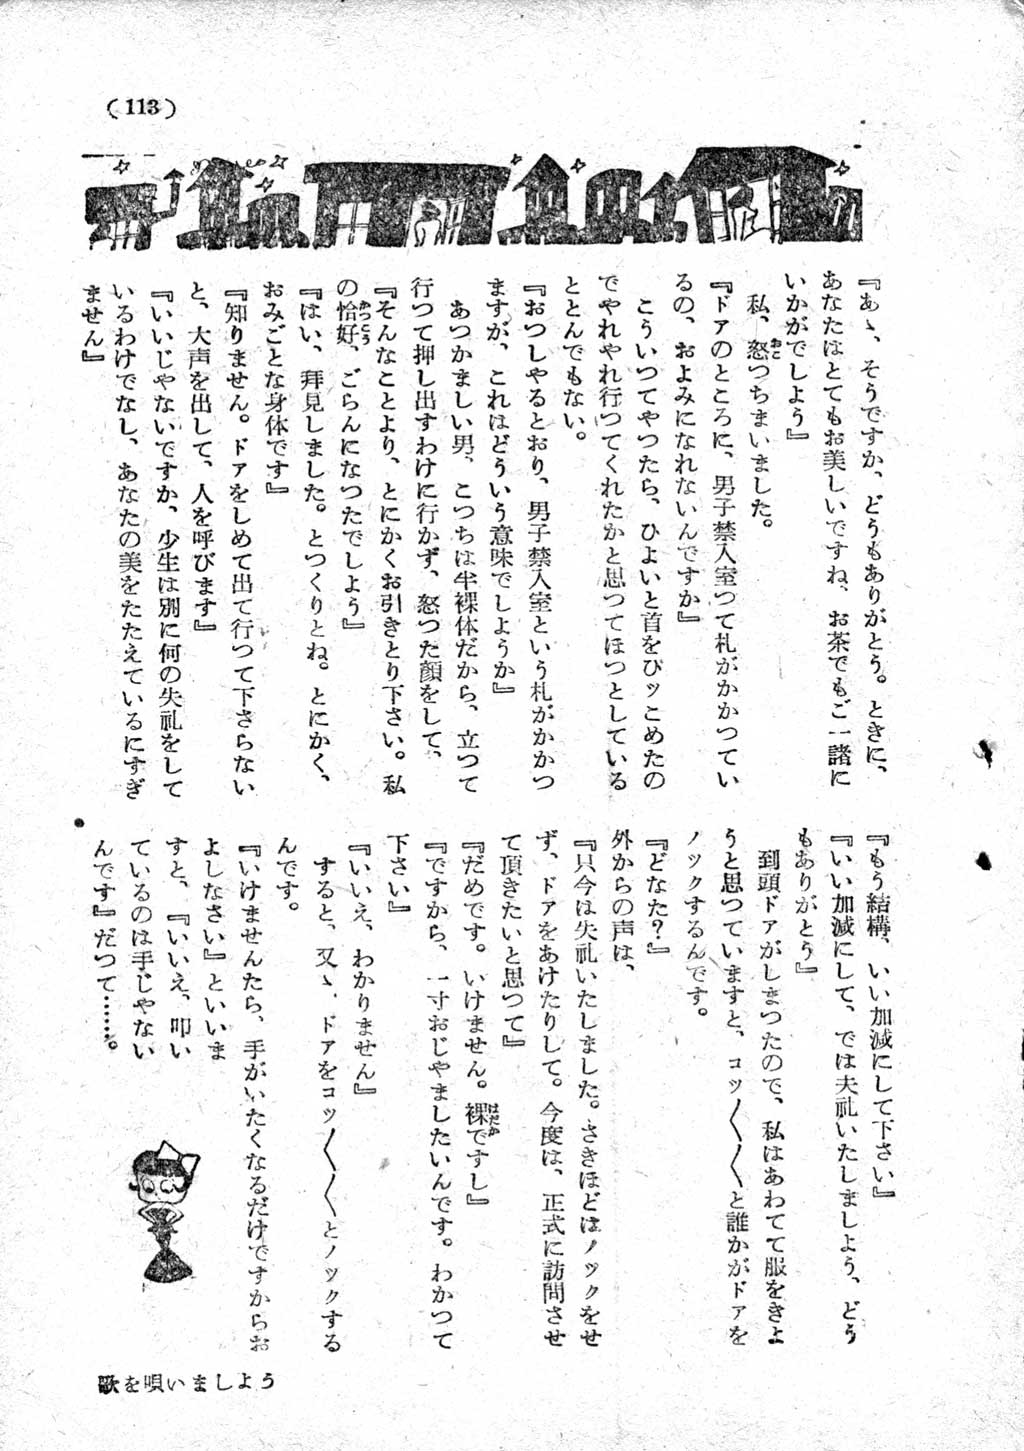 (113)
『あゝ、そうですか、どうもありがとう。ときに、
あなたはとてもお美しいですね、お茶でもご一諸に
いかがでしよう』
私、怒つちまいました。
『ドアのところに、男子禁入室つて札がかかつてい
るの、およみになれないんですか』
こういつてやつたら、ひよいと首をぴッこめたの
でやれやれ行つてくれたかと思つてほつとしている
ととんでもない。
『おつしやるとおり、男子禁入室という札がかかつ
ますが、これはどういう意味でしようか』
あつかましい男、こつちは半裸体だから、立つて
行つて押し出すわけに行かず、怒つた顔をして、
『そんなことより、とにかくお引きとり下さい。私
の恰好、ごらんになつたでしよう』
『はい、拜見しました。とつくりとね。とにかく、
おみごとな身体です』
『知りません。ドアをしめて出て行つて下さらない
と、大声を出して、人を呼びます』
『いいじやないですか、少生は別に何の失礼をして
いるわけでなし、あなたの美をたたえているにすぎ
ません』
『もう結構、いい加減にして下さい』
『いい加減にして、では失礼いたしましよう、どう
もありがとう』
到頭ドアがしまつたので、私はあわてて服をきよ
うと思つていますと、コッ〱〱と誰かがドアを
ノックするんです。
『どなた？』
外からの声は、
『只今は失礼いたしました。さきほどはノックをせ
ず、ドアをあけたりして。今度は、正式に訪問させ
て頂きたいと思つて』
『だめです。いけません。裸ですし』
『ですから、一寸おじやましたいんです。わかつて
下さい』
『いいえ、わかりません』
すると、又ゝ、ドアをコッ〱〱とノックする
んです。
『いけませんたら、手がいたくなるだけですからお
よしなさい』といいま
すと、『いいえ、叩い
ているのは手じやない
んです』だつて……。
歌を唄いましよう